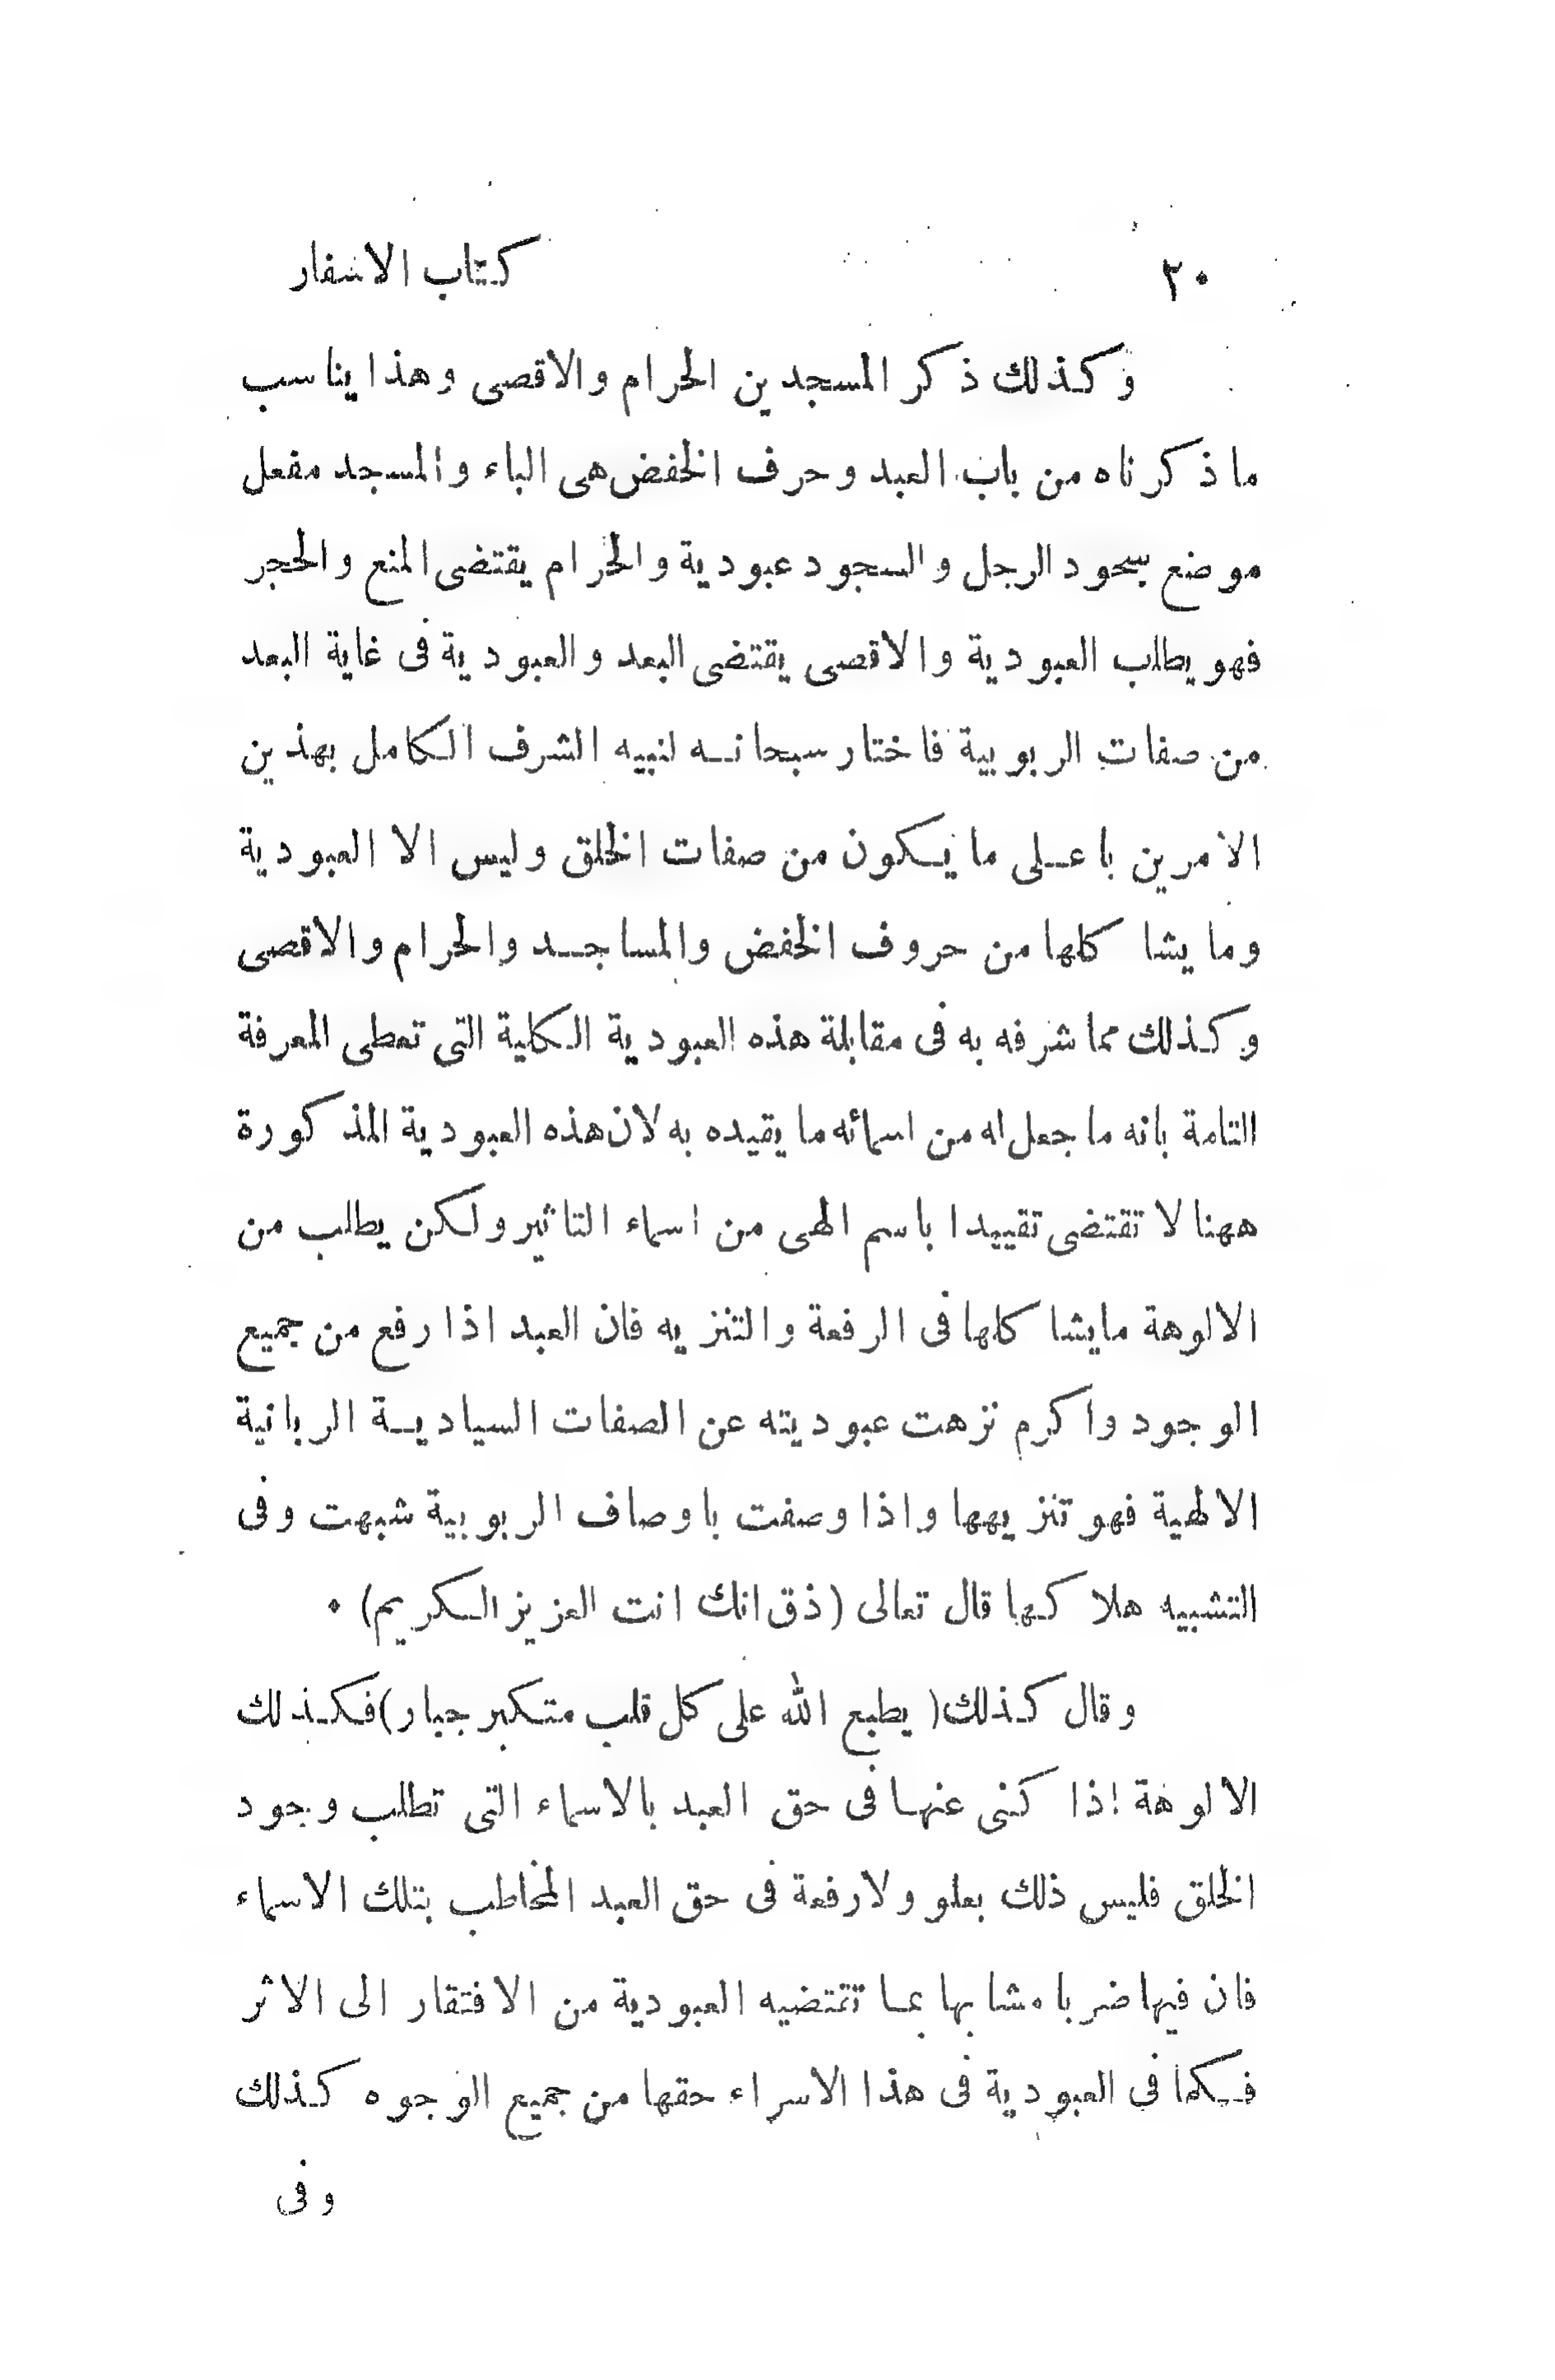 ٢٠
كتاب الاسفار
وكذلك ذكر المسجدين الحرام والاقصى وهذا يناسب
ما ذكرناه من باب العبد وحرف الخفض هى الباء والمسجد مفعل
موضع سجود الرجل والسجود عبودية والحرام يقتضى المنع والحجر
فهو يطلب العبودية والاقصى يقتضى البعد والعبودية فى غاية البعد
من صفات الربوبية فاختار سبحانه لنبيه الشرف الكامل بهذين
الامرين باعلى ما يكون من صفات الخلق وليس الا العبودية
وما يشا كلها من حروف الخفض والمساجد والحرام والاقصى
وكذلك مما شرفه به فى مقابلة هذه العبودية الكلية التى تعطى المعرفة
التامة بانه ما جعل له من اسمائه ما يقيده به لان هذه العبودية المذكورة
ههنا لا تقتضى تقييدا باسم الهى من اسماء التاثير ولكن يطلب من
الالوهة مايشا كلها فى الرفعة والتنزيه فان العبد اذا رفع من جميع
الوجود واكرم نزهت عبوديته عن الصفات السيادية الربانية
الالهية فهو تنزيهها واذا وصفت باوصاف الربوبية شبهت وفى
التشبيه هلا كها قال تعالى (ذق انك انت العزيز الكريم) ٠
وقال كذلك (يطبع الله على كل قلب متكبر جبار) فكذلك
الالوهة اذا كنى عنها فى حق العبد بالاسماء التى تطلب وجود
الخلق فليس ذلك بعلو ولا رفعة فى حق العبد المخاطب بتلك الاسماء
فان فيها ضربا مشابها بما تقتضيه العبودية من الافتقار الى الاثر
فكما فى العبودية فى هذا الاسراء حقها من جميع الوجوه كذلك
وفى